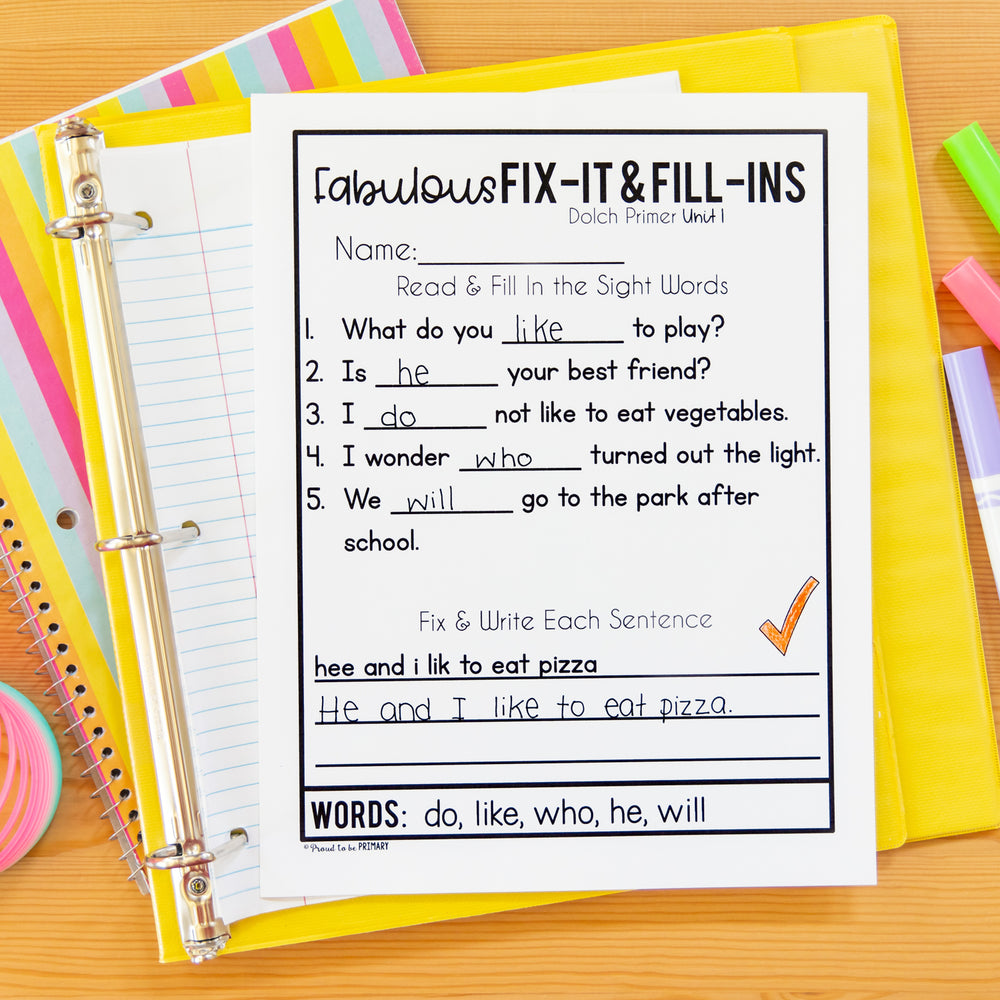 Fabulous FIX-IT & FILL-INS
Dolch Primer Unit 1
Name:
Read & Fill In the Sight Words
1. What do you like to play?
2. Is he your best friend?
3. I do not like to eat vegetables.
4. I wonder who turned out the light.
5. We will go to the park after
school.
Fix & Write Each Sentence
hee and i lik to eat pizza
He and I like to eat pizza.
WORDS: do, like, who, he, will
© Proud to be PRIMARY